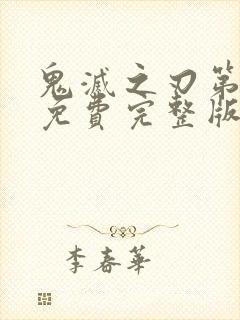 鬼滅之刃第
免費完整版
李春華